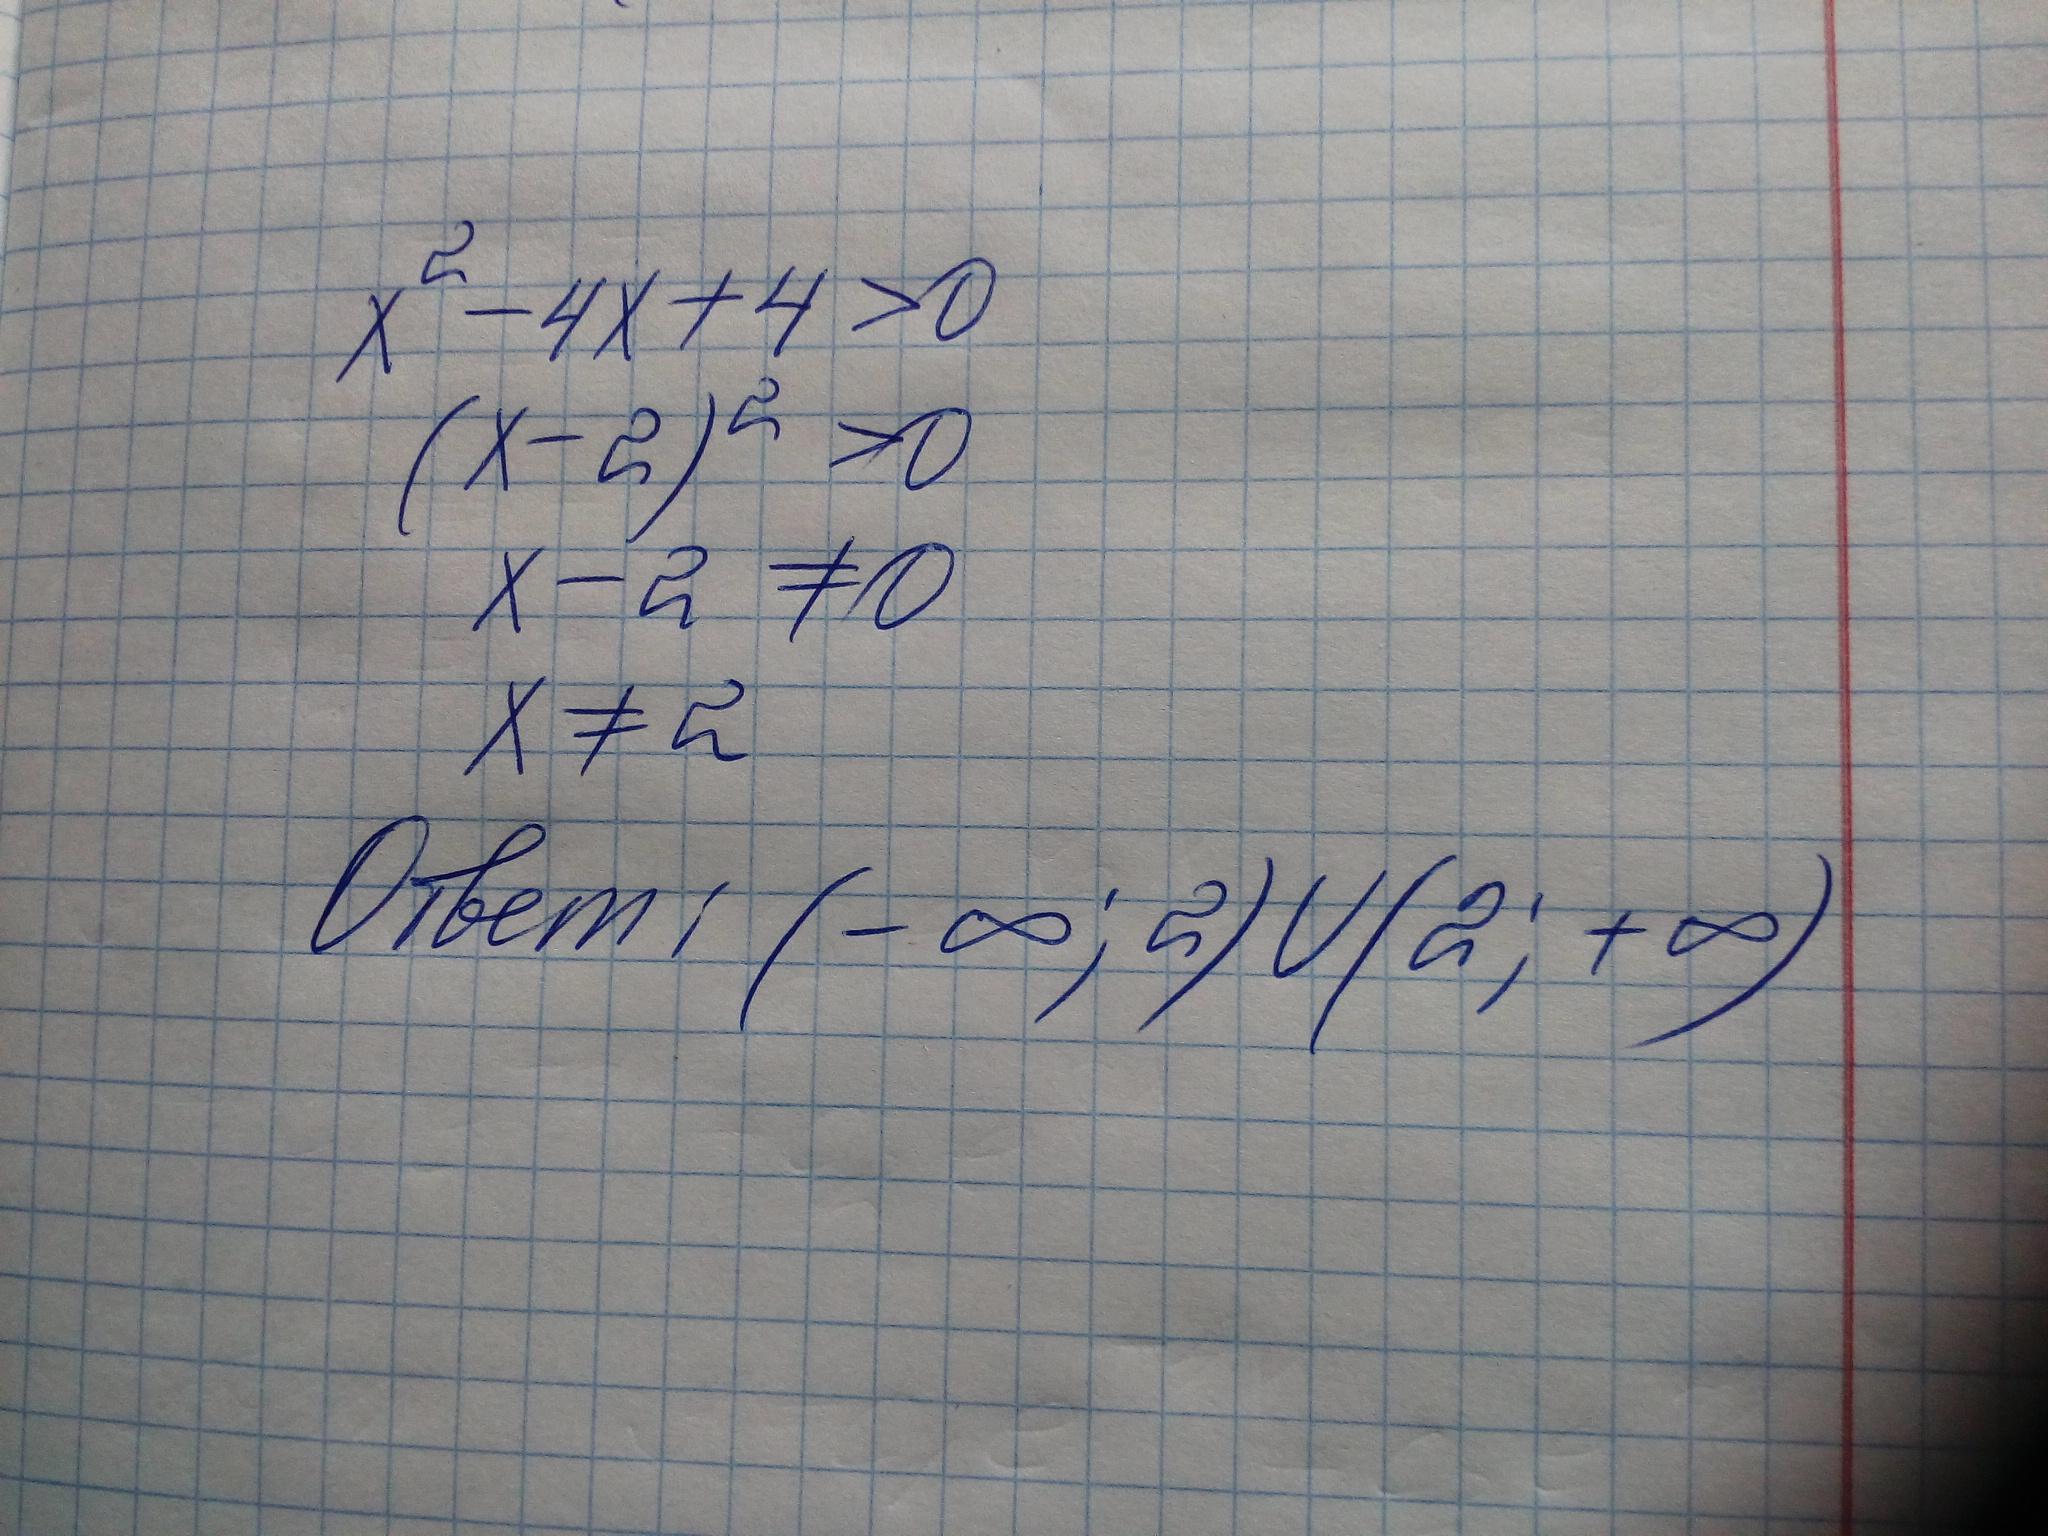 x² - 4x + 4 > 0
(x - 2)² > 0
x - 2 ≠ 0
x ≠ 2
Ответ: (-∞; 2) ∪ (2; +∞)